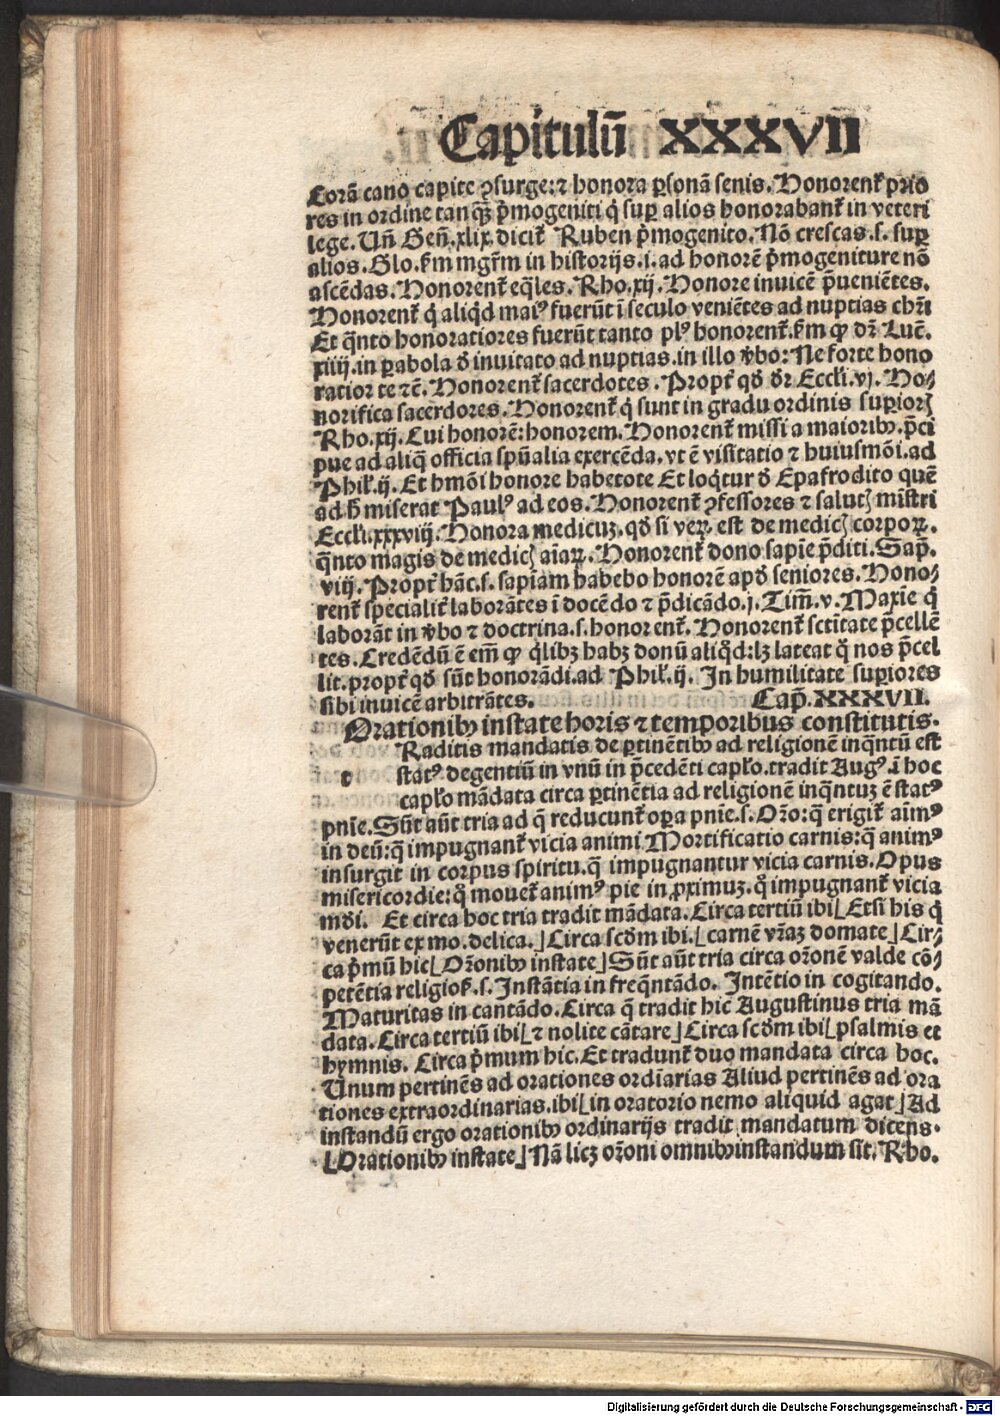 Capitulū XXXVII
Corā cano capite ꝯsurge:⁊ honora ꝑsonā senis. Honorent᷑ prio
res in ordine tanqꝫ p̄mogeniti q̇ suꝑ alios honorabant᷑ in veteri
lege. Un̄ Gen̄.xlix.dicit᷑ Ruben p̄mogenito. Nō crescas.s. suꝑ
alios. Glo. ẜm mgr̄m in historijs.i. ad honorē p̄mogeniture nō
ascēdas. Honorent᷑ eq̄les. Rho.xij. Honore inuicē p̄ueniētes.
Honorent᷑ q̇ aliqd maiꝰ fuerūt ī seculo veniētes ad nuptias chr̄i
Et q̄nto honoratiores fuerūt tanto plꝰ honorent᷑. ẜm ꝙ dr̄ Luc̄.
xiiij. in ꝑabola ð inuitato ad nuptias. in illo v̄bo: Ne forte hono
ratior te ⁊c̄. Honorent᷑ sacerdotes. Propt᷑ qð dr̄ Eccli.vj. Ho⸗
norifica sacerdotes. Honorent᷑ q̇ sunt in gradu ordinis superioꝝ
Rho.xij. Cui honorē: honorem. Honorent᷑ missi a maioribꝰ. p̄ci
pue ad aliq̄ officia spūalia exercēda. vt ē visitatio ⁊ huiusmōi. ad
Phil̓.ij. Et hmōi honore habetote Et loqtur ð Epafrodito quē
ad ħ miserat Paulꝰ ad eos. Honorent᷑ ꝯfessores ⁊ salutꝭ mīstri
Eccli.xxxviij. Honora medicuꝫ. qð si veꝝ est de medicꝭ corpoꝝ.
q̄nto magis de medicꝭ aīaꝝ. Honorent᷑ dono sapīe p̄diti. Sap̄.
viij. Propt᷑ hāc.s. sapīam habebo honorē apð seniores. Hono⸗
rent᷑ specialit᷑ laborātes ī docēdo ⁊ p̄dicādo.j. Tim̄.v. Maxīe q̇
laborāt in v̄bo ⁊ doctrina.s. honorent᷑. Honorent᷑ sctītate p̄cellē
tes. Credēdū ē em̄ ꝙ qlibꝫ habꝫ donū aliqd: lꝫ lateat q̇ nos p̄cel
lit. propt᷑ qð sūt honorādi. ad Phil̓.ij. In humilitate superiores
sibi inuicē arbitrātes. Cap̄. XXXVII.
Orationibꝰ instate horis ⁊ temporibus constitutis.
t Raditis mandatis de ꝑtinētibꝰ ad religionē inq̄ntū est
statꝰ degentiū in vnū in p̄cedēti capl̓o. tradit Augꝰ. ī hoc
capl̓o mādata circa ꝑtinētia ad religionē inq̄ntuꝫ ē statꝰ
pnīe. Sūt aūt tria ad q̄ reducunt᷑ oꝑa pnīe.s. Or̄o: q̄ erigit᷑ aīmꝰ
in deū: q̄ impugnant᷑ vicia animi Mortificatio carnis: q̄ animꝰ
insurgit in corpus spiritu. q̄ impugnantur vicia carnis. Opus
misericordie: q̇ mouet᷑ animꝰ pie in ꝓximuꝫ. q̇ impugnant᷑ vicia
mōi. Et circa hoc tria tradit mādata. Circa tertiū ibi⌊Etsi his q̇
venerūt ex mo. delica.⌋Circa scōm ibi.⌊carnē vr̄aꝫ domate⌋Cir⸗
ca p̄mū hic⌊Or̄onibꝰ instate⌋Sūt aūt tria circa or̄onē valde cō⸗
petētia religiosꝭ.s. Instātia in freq̄ntādo. Intētio in cogitando.
Maturitas in cantādo. Circa q̄ tradit hic Augustinus tria mā
data. Circa tertiū ibi⌊⁊ nolite cātare⌋Circa scōm ibi⌊psalmis et
hymnis. Circa p̄mum hic. Et tradunt᷑ duo mandata circa hoc.
Unum pertinēs ad orationes ordīarias Aliud pertinēs ad ora
tiones extraordinarias. ibi⌊in oratorio nemo aliquid agat⌋Ad
instandū ergo orationibꝰ ordinarijs tradit mandatum dicens.
⌊Orationibꝰ instate⌋Nā licꝫ or̄oni omnibꝰ instandum sit. Rho.
Digitalisierung gefördert durch die Deutsche Forschungsgemeinschaft - DFG